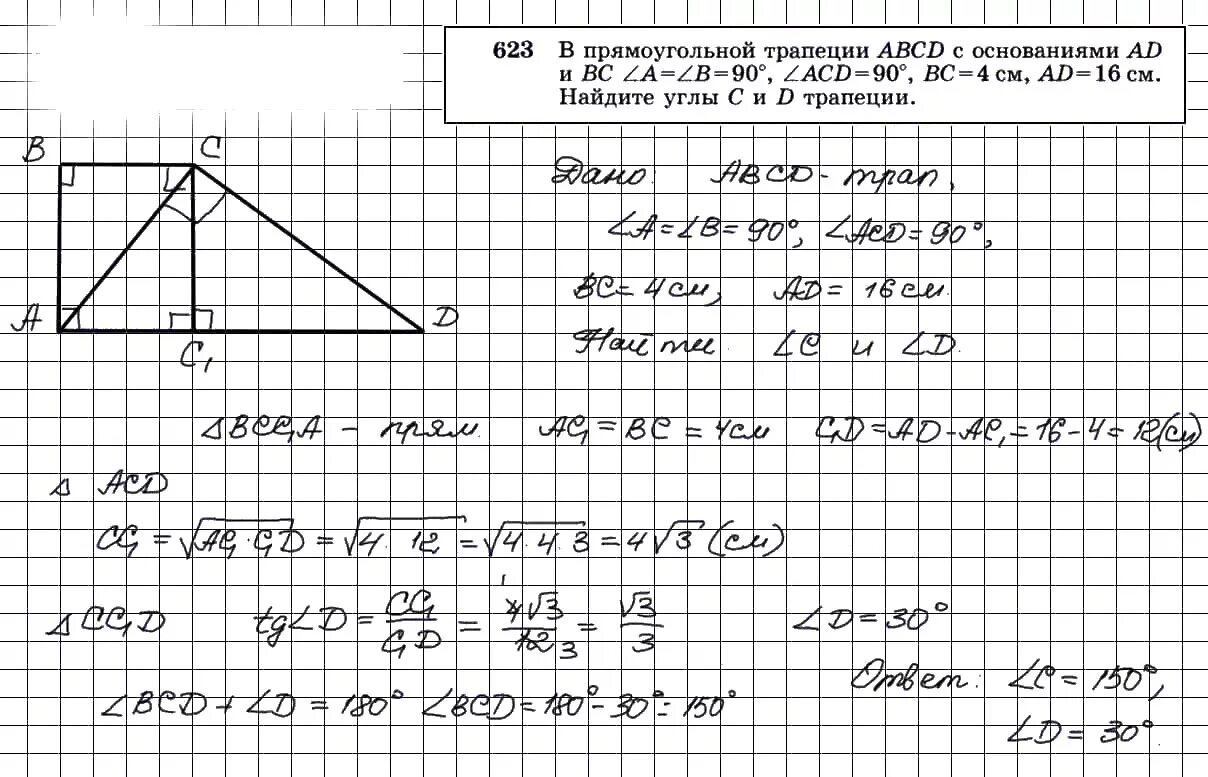 623 В прямоугольной трапеции ABCD с основаниями AD
и BC ∠A=∠B=90°, ∠ACD=90°, BC=4 см, AD=16 см.
Найдите углы C и D трапеции.
B C
A C₁ D
Дано: ABCD - трап,
∠A=∠B=90°, ∠ACD=90°,
BC=4см, AD=16см.
Найти ∠C и ∠D.
△BCC₁A - прям. AC₁=BC=4см C₁D=AD-AC₁=16-4=12(см)
△ ACD
CC₁=√(AC₁·C₁D)=√(4·12)=√(4·4·3)=4√3 (см)
△CC₁D tg∠D=CC₁/C₁D=4√3/12=√3/3 ∠D=30°
1 3
∠BCD+∠D=180° ∠BCD=180°-30°=150°
Ответ: ∠C=150°,
∠D=30°